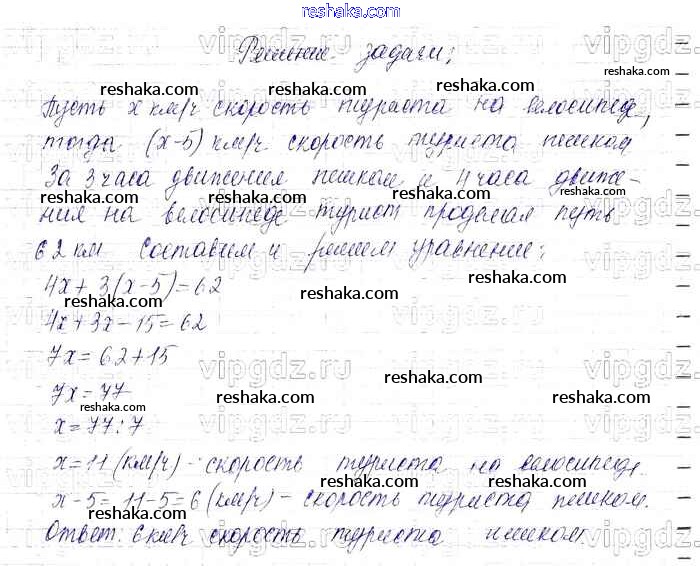 reshaka.com
Решение задачи:
Пусть x км/ч скорость туриста на велосипеде,
тогда (x-5) км/ч скорость туриста пешком
За 3 часа движения пешком и 4 часа движе-
ния на велосипеде турист проделал путь
62 км составим и решаем уравнение:
4x+3(x-5)=62
4x+3x-15=62
7x=62+15
7x=77
x=77:7
x=11 (км/ч) - скорость туриста на велосипеде.
x-5=11-5=6 (км/ч) - скорость туриста пешком.
Ответ: 6 км/ч скорость туриста пешком.